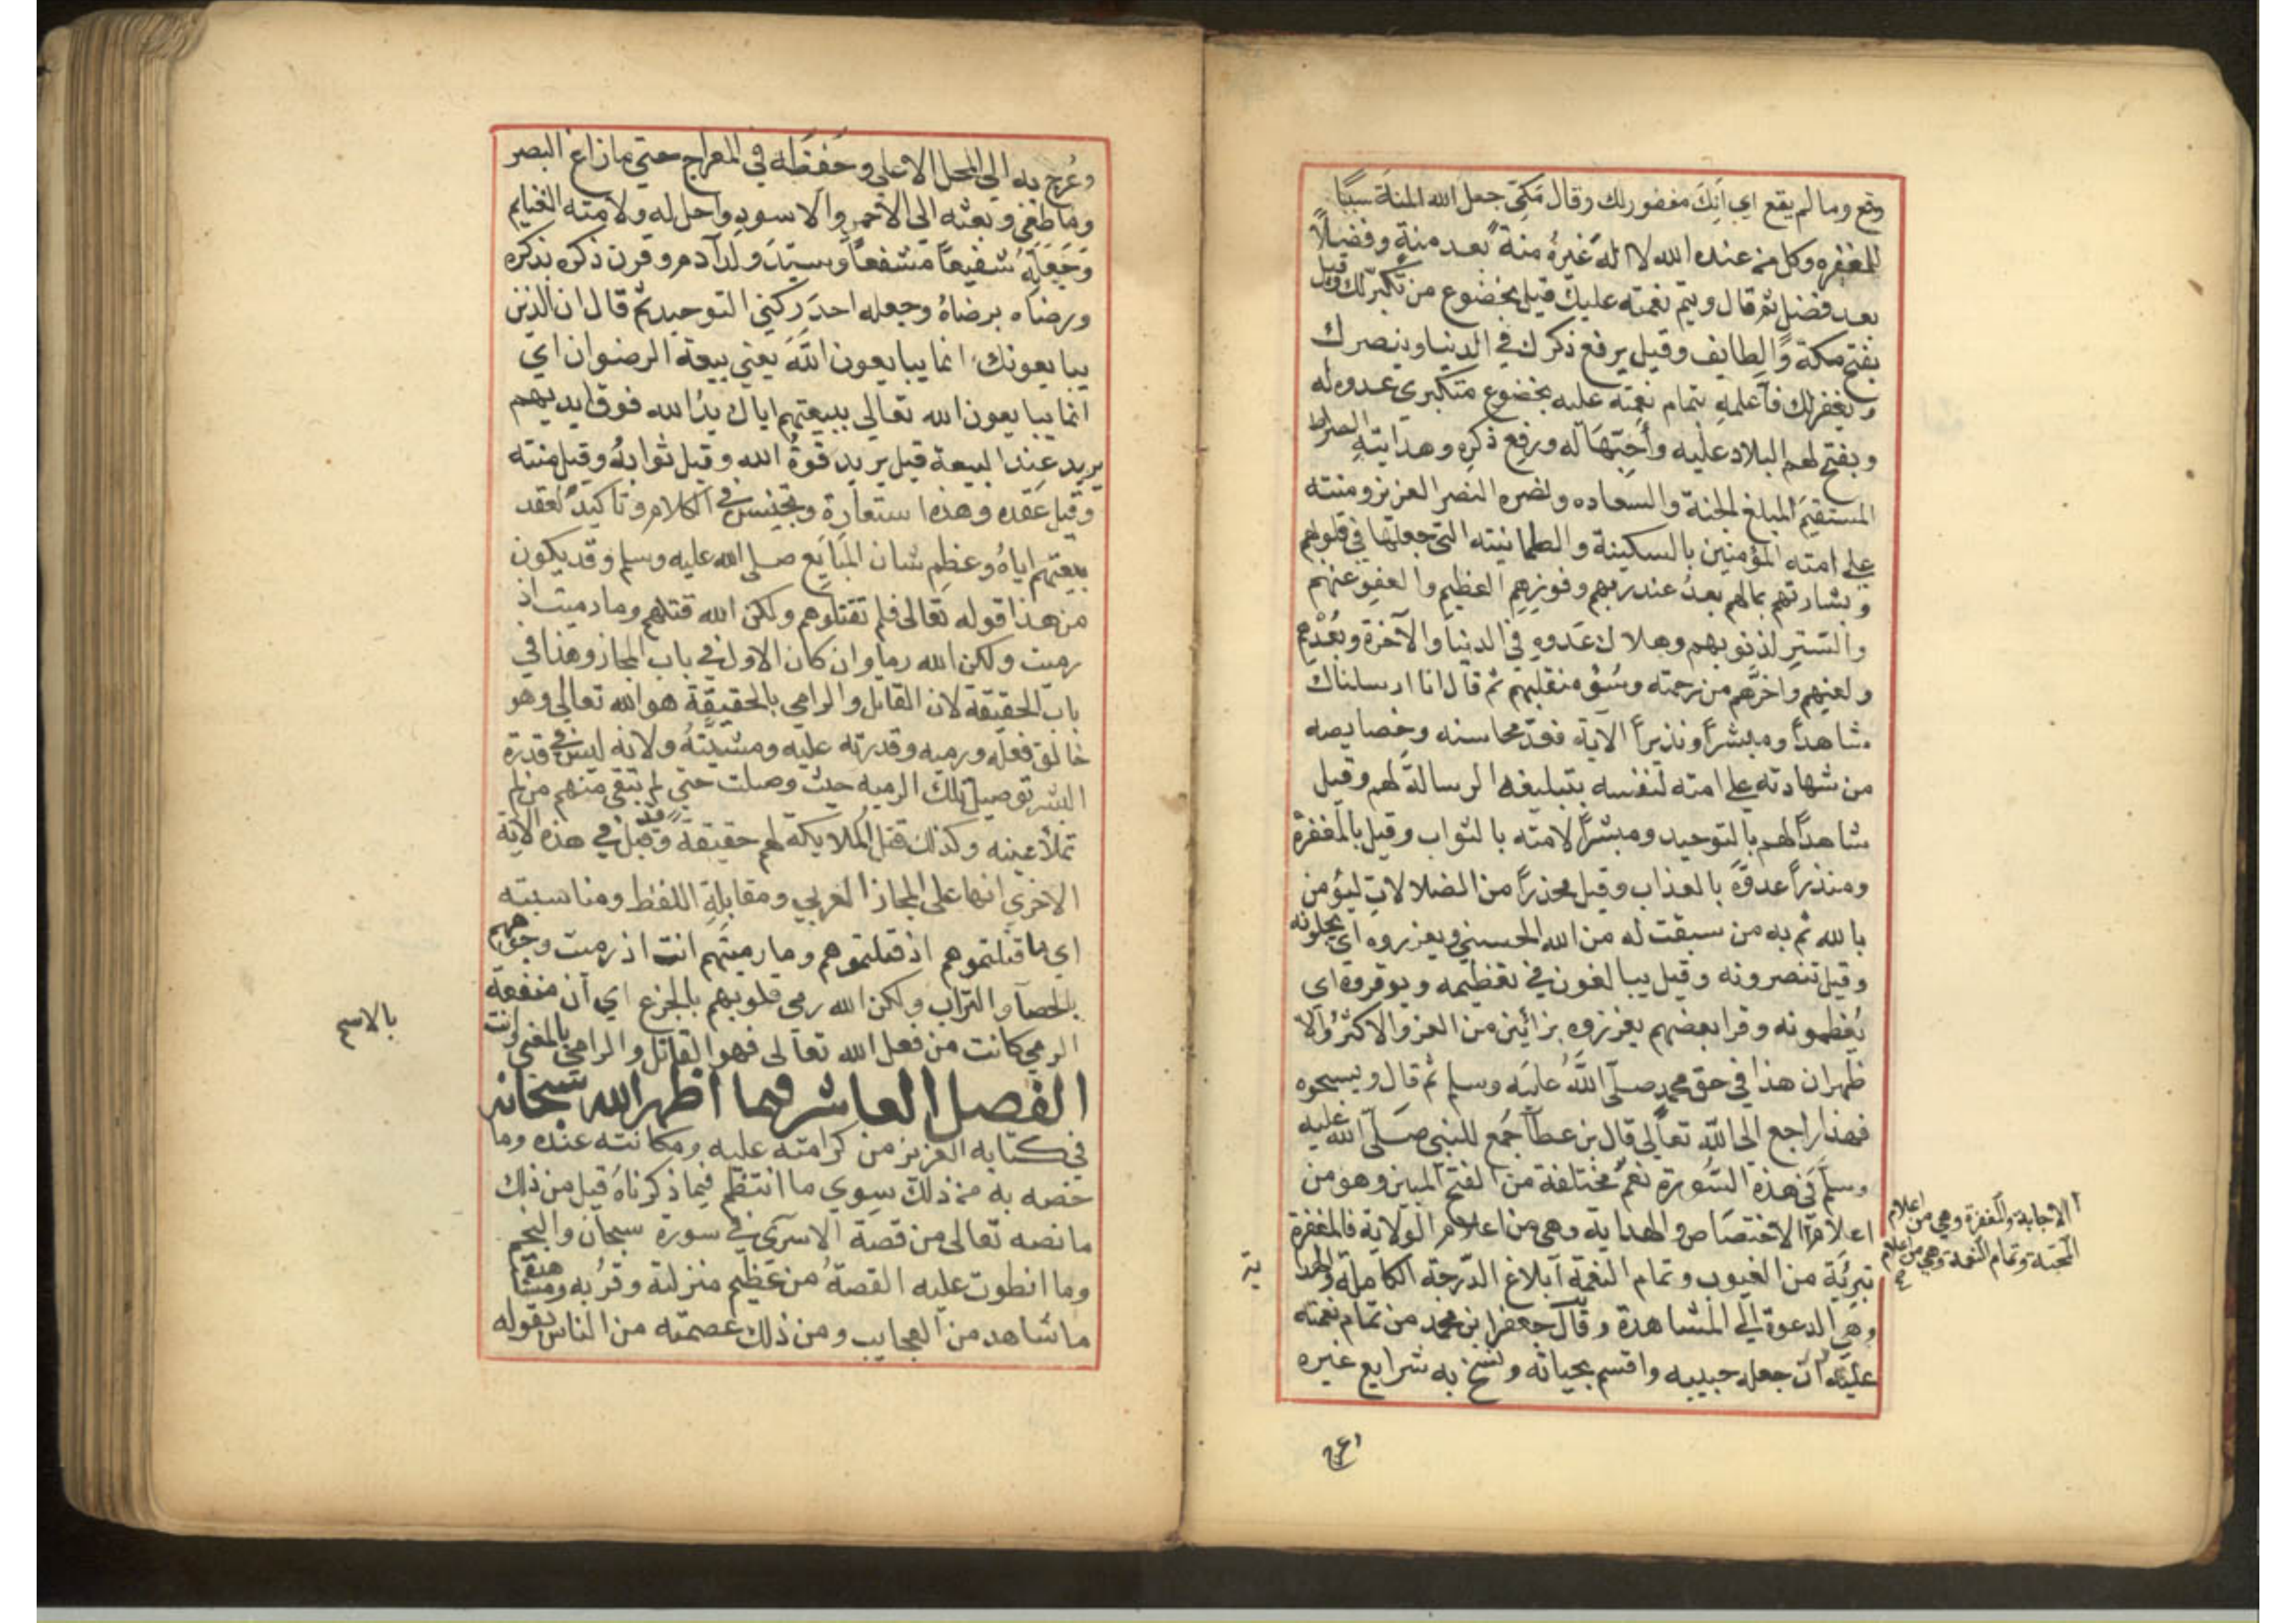 وقع وما لم يقع اي انك مغفور لك وقال مكي جعل الله المنة سببا
للمغفره وكل من عنده الله لا اله غيره منة بعد منة وفضلا
بعد فضل ثم قال ويتم نعمته عليك قيل بخضوع من تكبر لك وقيل
بفتح مكة والطايف وقيل يرفع ذكرك في الدنيا وينصرك
ويغفر لك فاعلمه بتمام نعمته عليه بخضوع متكبري عدوه له
وبفتح لهم البلاد عليه واحبها له ورفع ذكره وهدايته الصراط
المستقيم المبلغ الجنة والسعاده ونصره النصر العزيز ومنته
علي امته المؤمنين بالسكينة والطمانينته التي جعلها في قلوبهم
وبشارتهم بمالهم بعد عند ربهم وفوزهم العظيم والعفو عنهم
والستر لذنوبهم وهلاك عدوه في الدنيا والآخرة وبعدهم
ولعنهم واخرهم من رحمته وسؤ منقلبهم ثم قال انا ارسلناك
شاهدا ومبشرا ونذيرا الآية فعد محاسنه وخصايصه
من شهادته علي امته لنفسه بتبليغه الرسالة لهم وقيل
شاهدا لهم بالتوحيد ومبشرا لامته بالثواب وقيل بالمغفرة
ومنذرا عدوه بالعذاب وقيل محذرا من الضلالات ليؤمن
بالله ثم به من سبقت له من الله الحسني ويعزروه اي يجلونه
وقيل تنصرونه وقيل يبالغون في تعظيمه ويوقروه اي
يعظمونه وقرا بعضهم يعززوه بزائين من العز والاكثر والا
ظهر ان هذا في حق محمد صلى الله عليه وسلم ثم قال ويسبحوه
فهذا راجع الي الله تعالي قال بن عطآ جمع للنبي صلى الله عليه
وسلم في هذه السورة نعم مختلفة من الفتح المبين وهو من
اعلام الاختصاص والهداية وهي من اعلام الولاية فالمغفرة
تبرئية من العيوب وتمام النعمة ابلاغ الدرجة الكاملة والهدا
ية
وهي الدعوة الي المشاهدة وقال جعفر بن محمد من تمام نعمته
عليه ان جعله حبيبه واقسم بحياته ونسخ به شرايع غيره
الاجابة والمغفرة وهي من اعلام
المحبة وتمام النعمة وهي من اعلام
وعرج به الي المحل الاعلي وحفظه في المعراج حتي ما زاغ البصر
وما طغي وبعثه الي الاحمر والاسود واحل له ولامته الغنايم
وجعله شفيعا مشفعا وسيد ولد آدم وقرن ذكره بذكره
ورضاه برضاه وجعله احد ركني التوحيد ثم قال ان الذين
يبايعونك انما يبايعون الله يعني بيعة الرضوان اي
انما يبايعون الله تعالي ببيعتهم اياك يد الله فوق ايديهم
يريد عند البيعة قيل يريد قوة الله وقيل ثوابه وقيل منته
وقيل عقده وهذا استعارة وتجنيس في الكلام وتاكيد لعقد
بيعتهم اياه وعظم شان المبايع صلى الله عليه وسلم وقد يكون
من هذا قوله تعالى فلم تقتلوهم ولكن الله قتلهم وما رميت اذ
رميت ولكن الله رما وان كان الاول في باب المجاز وهذا في
باب الحقيقة لان القاتل والرامي بالحقيقة هو الله تعالي وهو
خالق فعله ورميه وقدرته عليه ومشيته ولانه ليس في قدرة
البشر توصيل تلك الرمية حيث وصلت حتي لم تبقي منهم من لم
تملأ عينه وكذلك قتل الملايكة لهم حقيقة وقد قيل في هذه الآية
الاخري انها على المجاز العربي ومقابلة اللفظ ومناسبته
اي ما قتلتموهم اذ قتلتموهم وما رميتهم انت اذ رميت وجوههم
بالحصآ والتراب ولكن الله رمي قلوبهم بالجزع اي ان منفعة
الرمي كانت من فعل الله تعالى فهو القاتل والرامي بالمعني وانت
بالاسم
الفصل العاشر فيما اظهر الله سبحانه
في كتابه العزيز من كرامته عليه ومكانته عنده وما
خصه به من ذلك سوي ما انتظم فيما ذكرناه قبل من ذلك
ما نصه تعالى من قصة الاسرى في سورة سبحان والنجم
وما انطوت عليه القصة من عظيم منزلته وقربه ومشاهدته
ما شاهد من العجايب ومن ذلك عصمته من الناس بقوله